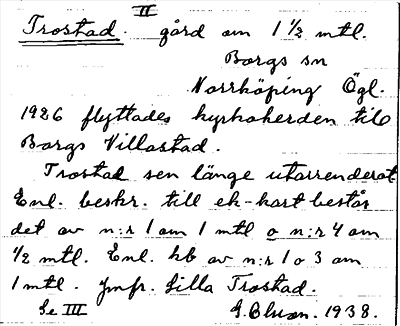 II
Trostad. gård om 1 1/2 mtl.
Borgs sn
Norrköping Ögl.
1926 flyttades kyrkoherden till
Borgs Villastad.
Trostad sen länge utarrenderat
Enl. beskr. till ek-kart består
det av n:r 1 om 1 mtl o n:r 4 om
1/2 mtl. Enl. kb av n:r 1 o 3 om
1 mtl. Jmfr. Lilla Trostad.
Se III
1938.